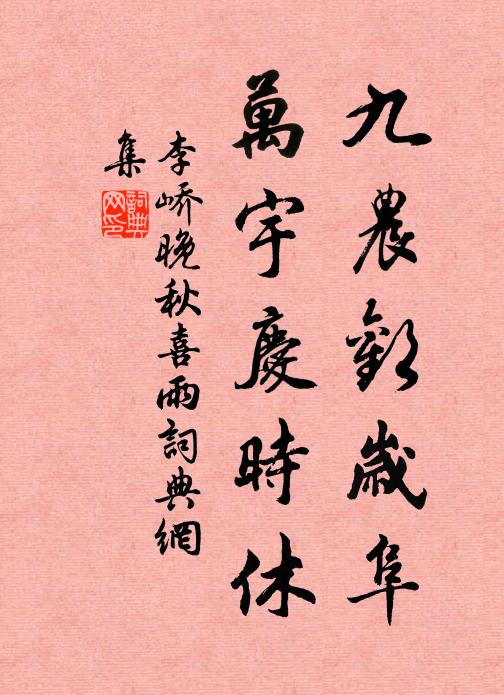 九農歡歲阜
萬宇慶時休
李嶠晚秋喜雨詞典網
集
詞典
网印